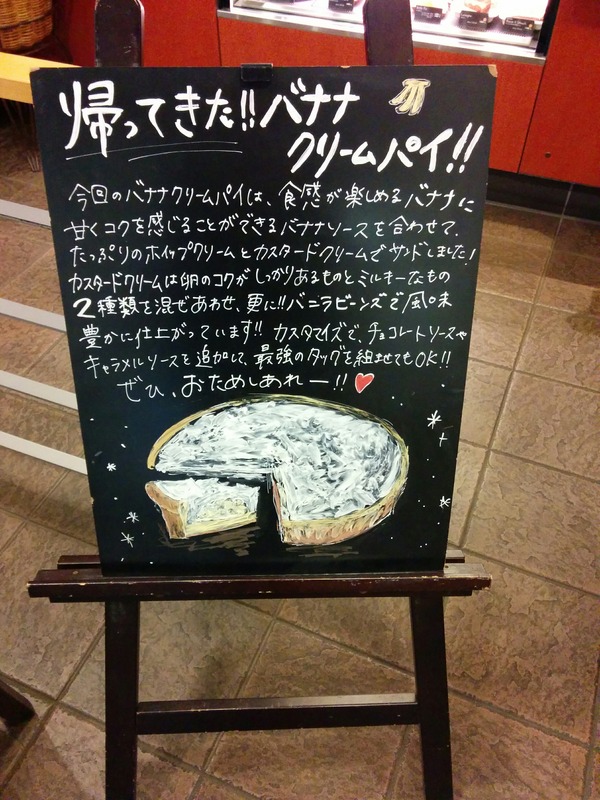 帰ってきた!!バナナ
クリームパイ!!
今回のバナナクリームパイは、食感が楽しめるバナナに
甘くコクを感じることができるバナナソースを合わせて、
たっぷりのホイップクリームとカスタードクリームでサンドしました!
カスタードクリームは卵のコクがしっかりあるものとミルキーなもの
2種類を混ぜあわせ、更に!!バニラビーンズで風味
豊かに仕上がっています!! カスタマイズで、チョコレートソースや
キャラメルソースを追加して、最強のタッグを組ませてもOK!!
ぜひ、おためしあれー!!